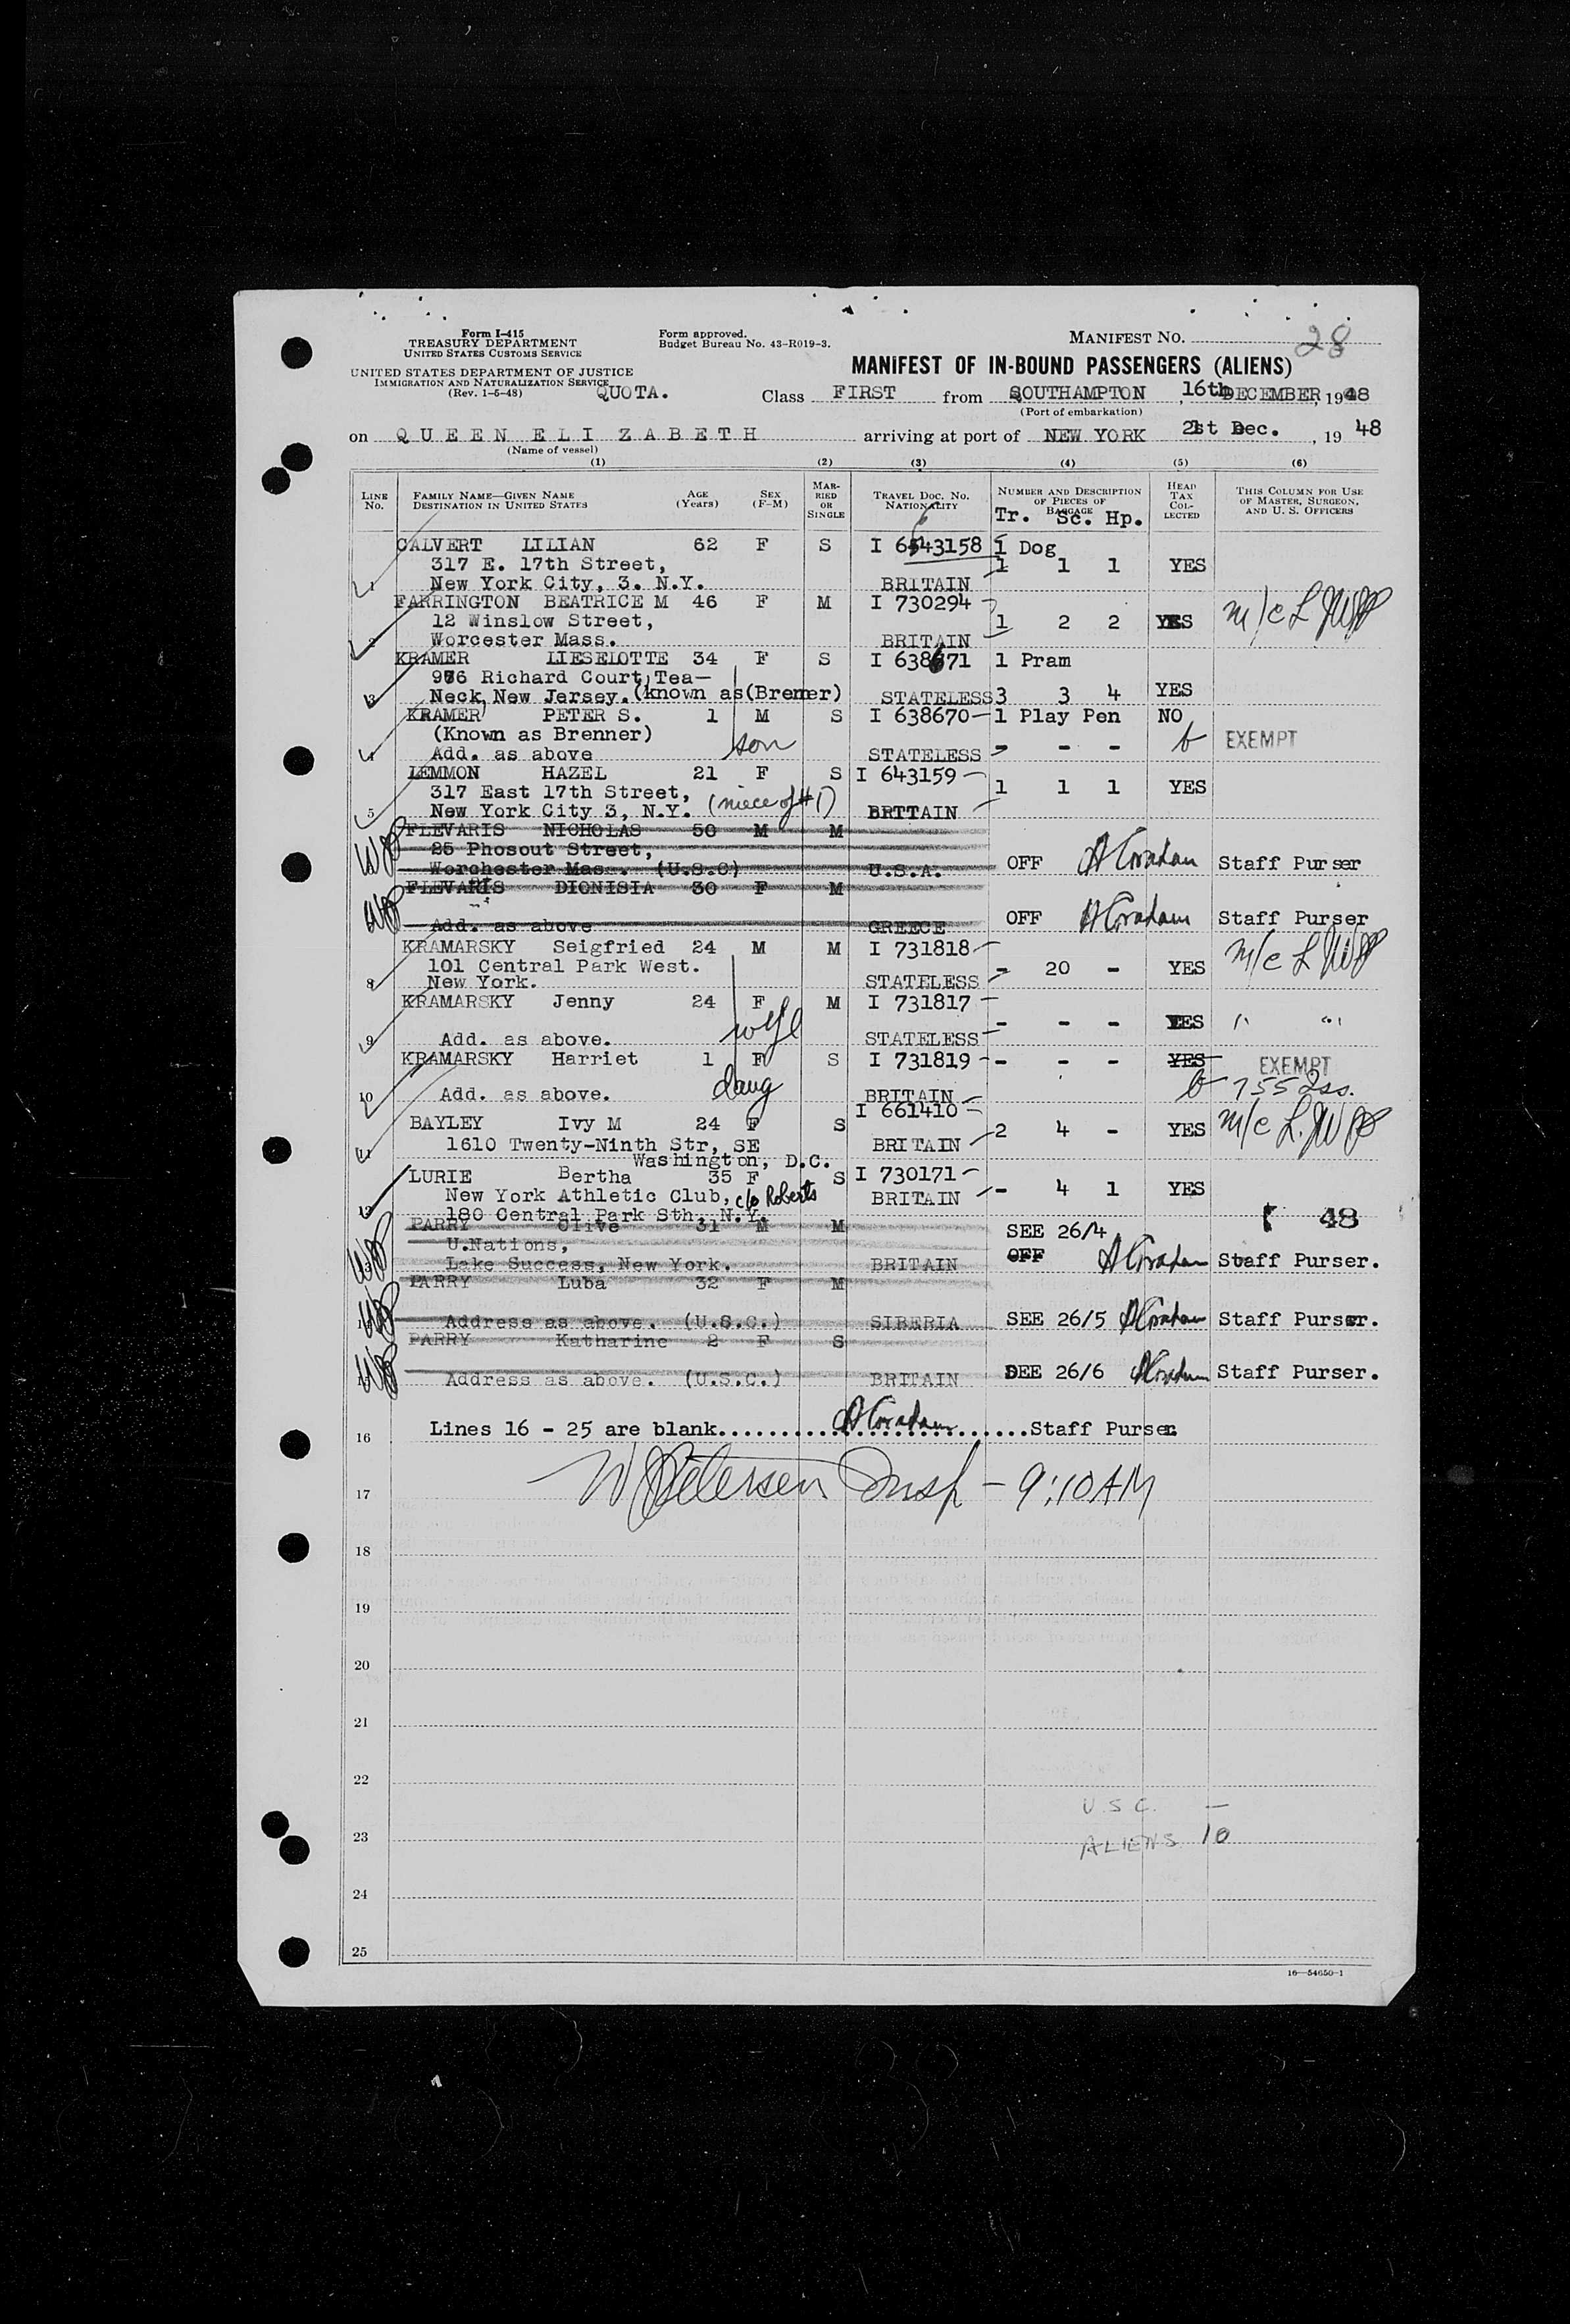 Form I-415
TREASURY DEPARTMENT
UNITED STATES CUSTOMS SERVICE
Form approved.
Budget Bureau No. 43-R019-3.
MANIFEST NO. 28
UNITED STATES DEPARTMENT OF JUSTICE
IMMIGRATION AND NATURALIZATION SERVICE
(Rev. 1-6-48)
MANIFEST OF IN-BOUND PASSENGERS (ALIENS)
QUOTA. Class FIRST from SOUTHAMPTON 16th DECEMBER, 1948
(Port of embarkation)
on QUEEN ELIZABETH arriving at port of NEW YORK 21st Dec., 19 48
(Name of vessel)
(1) (2) (3) (4) (5) (6)
LINE NO. FAMILY NAME—GIVEN NAME DESTINATION IN UNITED STATES AGE (Years) SEX (F-M) MARRIED OR SINGLE TRAVEL DOC. NO. NATIONALITY NUMBER AND DESCRIPTION OF PIECES OF BAGGAGE HEAD TAX COLLECTED THIS COLUMN FOR USE OF MASTER, SURGEON, AND U. S. OFFICERS
Tr. Sc. Hp.
CALVERT LILIAN 62 F S I 643158 1 Dog
317 E. 17th Street, 1 1 1 YES
1 New York City, 3. N.Y. BRITAIN
FARRINGTON BEATRICE M 46 F M I 730294
12 Winslow Street, 1 2 2 YES m/c L
2 Worcester Mass. BRITAIN
KRAMER LIESELOTTE 34 F S I 638671 1 Pram
976 Richard Court, Tea-
3 Neck, New Jersey. (known as (Brenner) STATELESS 3 3 4 YES
KRAMER PETER S. 1 M S I 638670 1 Play Pen NO
(Known as Brenner) son EXEMPT
4 Add. as above STATELESS - - -
LEMMON HAZEL 21 F S I 643159
317 East 17th Street, (niece of #1) 1 1 1 YES
5 New York City 3, N.Y. BRITAIN
FLEVARIS NICHOLAS 50 M M
25 Phosout Street,
Worchester Mas. (U.S.C) U.S.A. OFF A Graham Staff Purser
FLEVARIS DIONISIA 30 F M
Add. as above GREECE OFF A Graham Staff Purser
KRAMARSKY Seigfried 24 M M I 731818 m/c L
101 Central Park West. - 20 - YES
8 New York. STATELESS
KRAMARSKY Jenny 24 F M I 731817
wife - - - YES " "
9 Add. as above. STATELESS
KRAMARSKY Harriet 1 F S I 731819 - - - YES EXEMPT
10 Add. as above. daug BRITAIN
I 661410
BAYLEY Ivy M 24 F S 2 4 - YES m/c L.
11 1610 Twenty-Ninth Str, SE BRITAIN
Washington, D.C.
LURIE Bertha 35 F S I 730171
New York Athletic Club, c/o Roberts BRITAIN - 4 1 YES
12 180 Central Park Sth, N.Y. 48
PARRY Clive 31 M M SEE 26/4
U.Nations, OFF
13 Lake Success, New York. BRITAIN A Graham Staff Purser.
PARRY Luba 32 F M
14 Address as above. (U.S.C.) SIBERIA SEE 26/5 A Graham Staff Purser.
PARRY Katharine 2 F S
Address as above. (U.S.C.) BRITAIN DEE 26/6 A Graham Staff Purser.
16 Lines 16 - 25 are blank.......... A Graham ..........Staff Purser
17 W Petersen Insp - 9:10 AM
18
19
20
21
22
U.S.C. —
23 ALIENS 10
24
25
16—54650-1